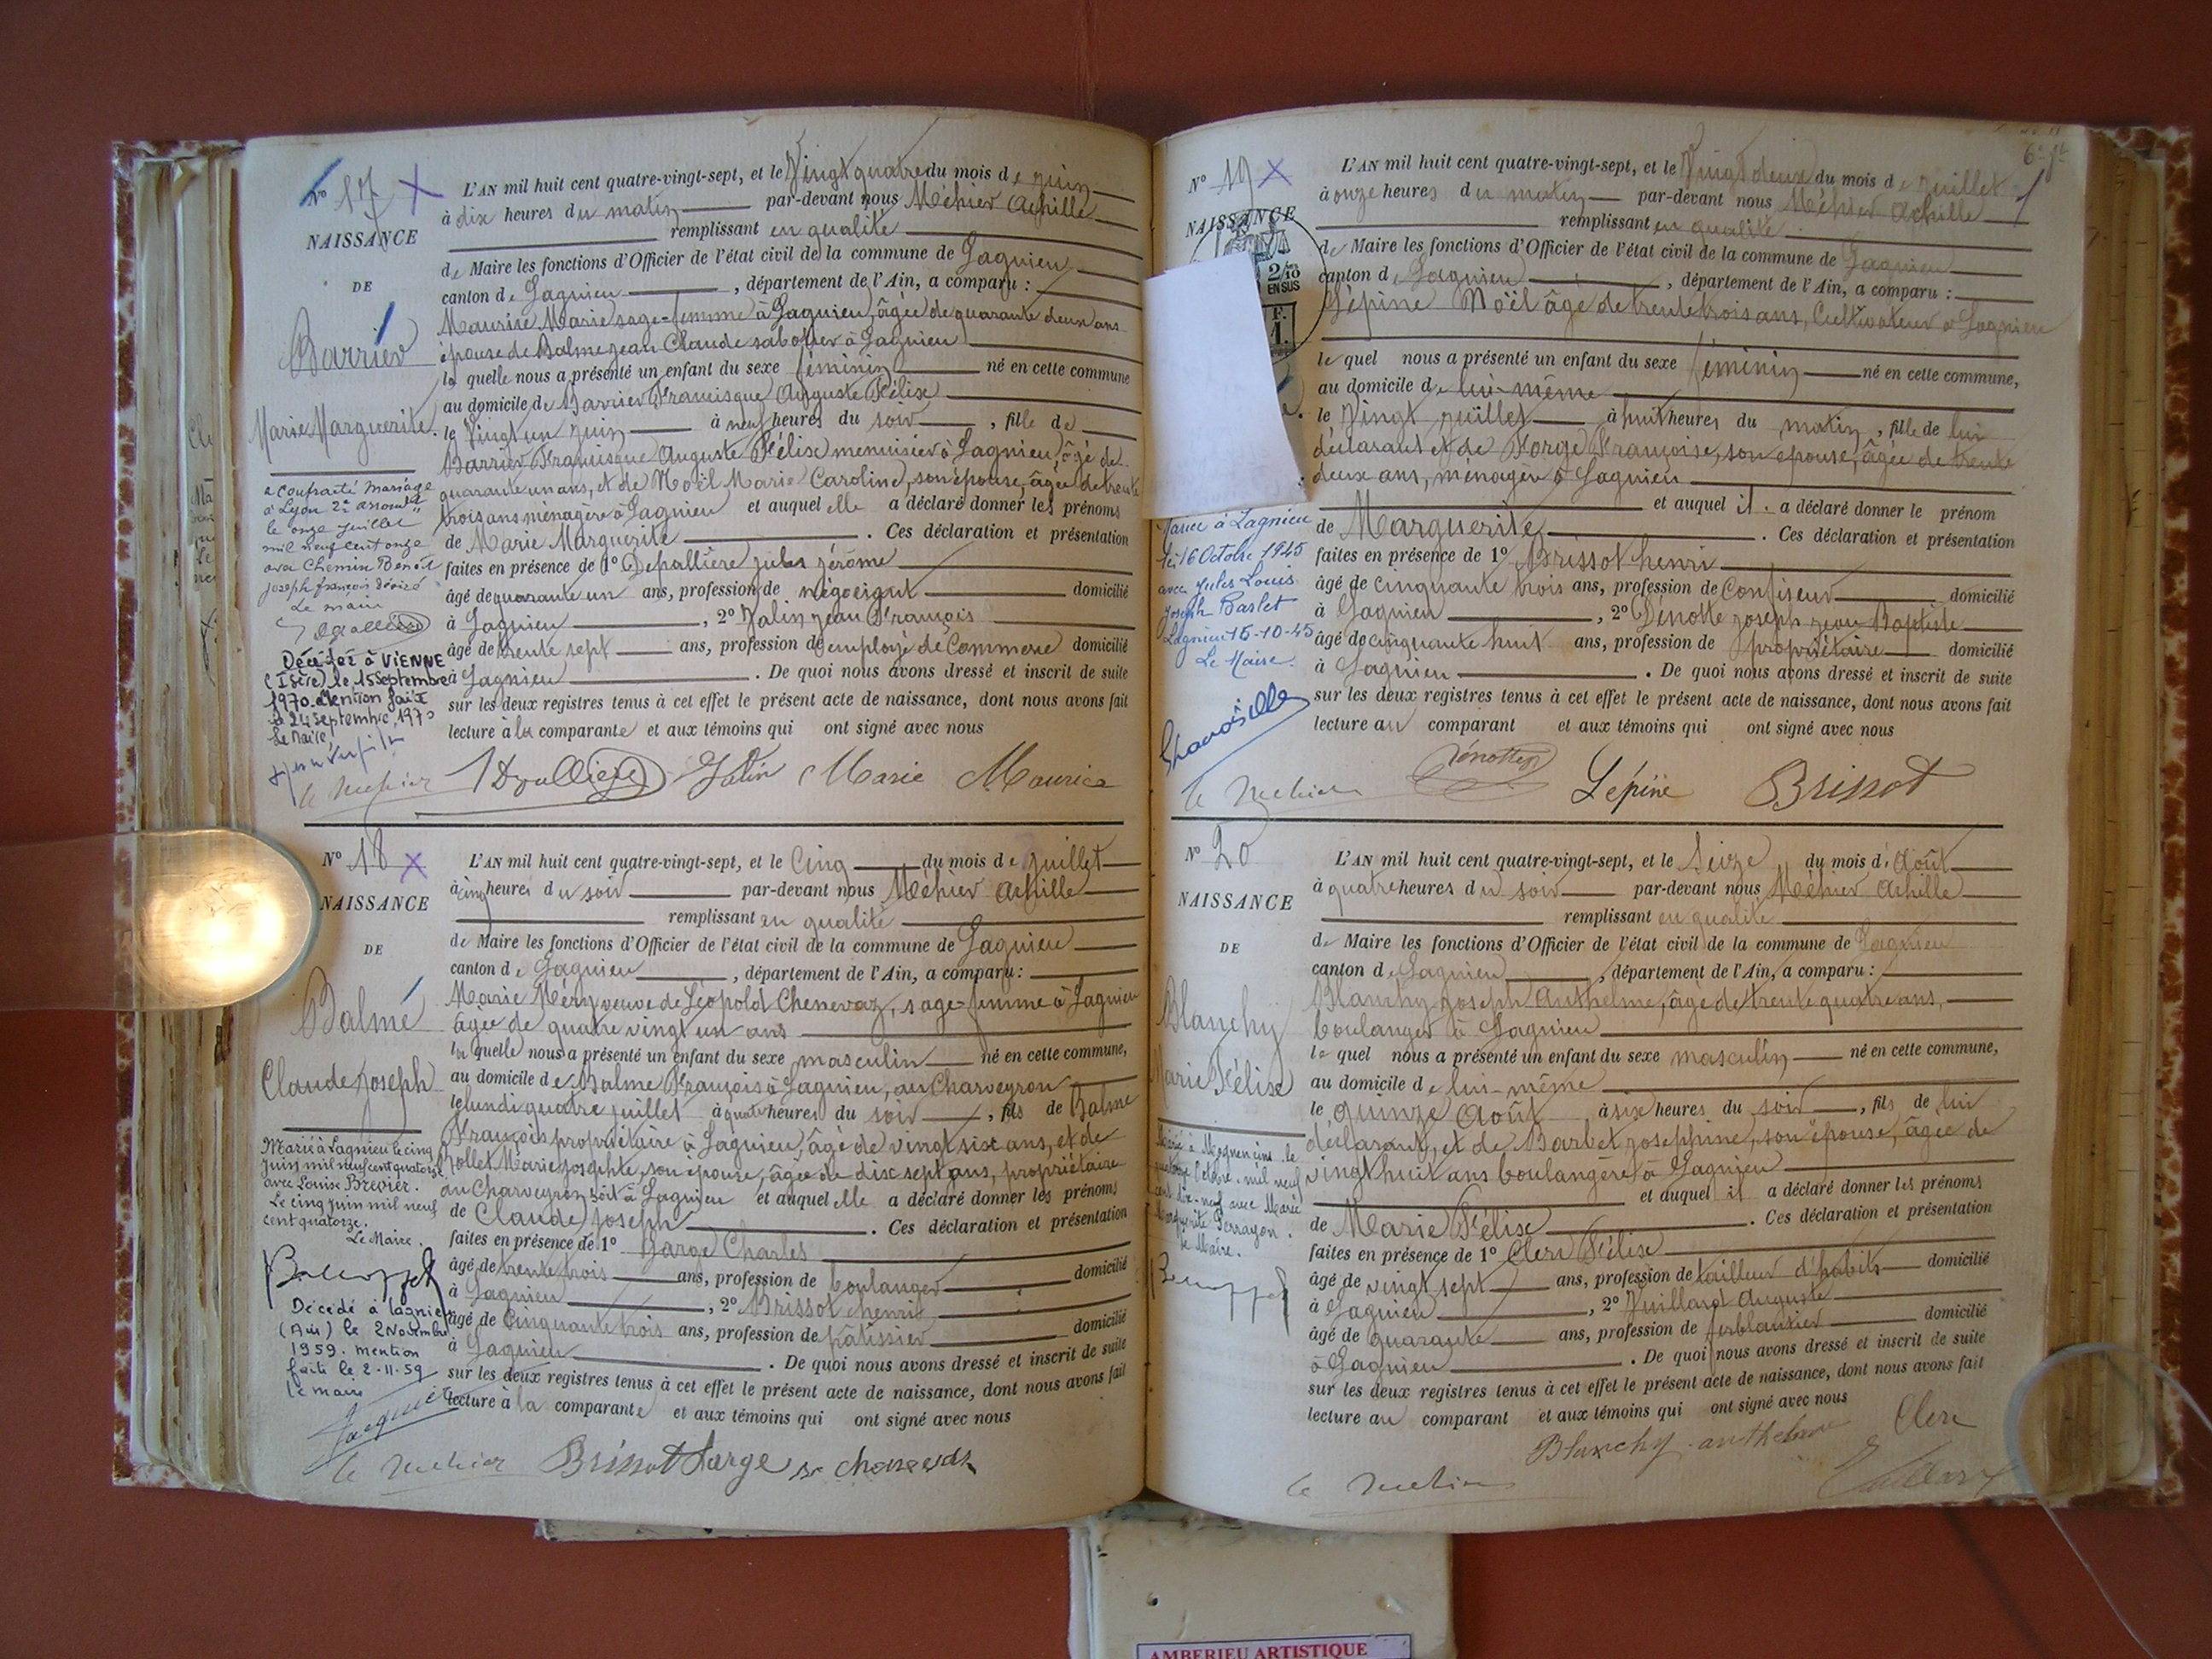 N° 17
NAISSANCE
DE
Barrier
Marie Marguerite.
a contracté mariage
à Lyon 2e arrondt
le onze juillet
mil neuf cent onze
avec Chemin Benoît
Joseph françois désiré
Le maire
Décédée à VIENNE
(Isère) le 15 Septembre
1970. Mention faite
le 24 Septembre 1970
Le Maire,
L'AN mil huit cent quatre-vingt-sept, et le Vingt quatre du mois de juin
à dix heures du matin par-devant nous Méhier Achille
remplissant en qualité
de Maire les fonctions d'Officier de l'état civil de la commune de Lagnieu
canton de Lagnieu, département de l'Ain, a comparu :
Maurise Marie sage-femme à Lagnieu, âgée de quarante deux ans
épouse de Balme jean Claude sabotier à Lagnieu
la quelle nous a présenté un enfant du sexe féminin né en cette commune
au domicile de Barrier Francisque Auguste Félix
le Vingt un juin à neuf heures du soir, fille de
Barrier Francisque Auguste Félix menuisier à Lagnieu, âgé de
quarante un ans, et de Noël Marie Caroline, son épouse, âgée de trente
trois ans ménagère à Lagnieu et auquel elle a déclaré donner les prénoms
de Marie Marguerite. Ces déclaration et présentation
faites en présence de 1° Depallière jules jérôme
âgé de quarante un ans, profession de négociant domicilié
à Lagnieu, 2° Jalin jean François
âgé de trente sept ans, profession d'employé de Commerce domicilié
à Lagnieu. De quoi nous avons dressé et inscrit de suite
sur les deux registres tenus à cet effet le présent acte de naissance, dont nous avons fait
lecture à la comparante et aux témoins qui ont signé avec nous
Jalin Marie Maurice
N° 18
NAISSANCE
DE
Balme
Claude joseph
Marié à Lagnieu le cinq
juin mil neuf cent quatorze
avec Louise Brevier.
Le cinq juin mil neuf
cent quatorze.
Le Maire.
Décédé à Lagnieu
(Ain) le 2 Novembre
1959. mention
faite le 2-11-59
le maire
L'AN mil huit cent quatre-vingt-sept, et le Cinq du mois de juillet
à cinq heures du soir par-devant nous Méhier Achille
remplissant en qualité
de Maire les fonctions d'Officier de l'état civil de la commune de Lagnieu
canton de Lagnieu, département de l'Ain, a comparu :
Marie Méry veuve de Léopold Chenevaz, sage-femme à Lagnieu
âgée de quatre vingt un ans
la quelle nous a présenté un enfant du sexe masculin né en cette commune,
au domicile de Balme François à Lagnieu, au Charveyron
le lundi quatre juillet à quatre heures du soir, fils de Balme
François propriétaire à Lagnieu, âgé de vingt six ans, et de
Mollet Marie josephte, son épouse, âgée de dix sept ans, propriétaire
au Charveyron soit à Lagnieu et auquel elle a déclaré donner les prénoms
de Claude joseph. Ces déclaration et présentation
faites en présence de 1° Large Charles
âgé de trente trois ans, profession de boulanger domicilié
à Lagnieu, 2° Brissot henri
âgé de Cinquante trois ans, profession de pâtissier domicilié
à Lagnieu. De quoi nous avons dressé et inscrit de suite
sur les deux registres tenus à cet effet le présent acte de naissance, dont nous avons fait
lecture à la comparante et aux témoins qui ont signé avec nous
Brissot Large
N° 19
NAISSANCE
2/10
EN SUS
F.
1.
à Lagnieu
le 16 Octobre 1945
avec Jules Louis
Joseph Barlet
Lagnieu 16-10-45
Le Maire.
6e ft
L'AN mil huit cent quatre-vingt-sept, et le Vingt deux du mois de juillet
à onze heures du matin par-devant nous Méhier Achille
remplissant en qualité
de Maire les fonctions d'Officier de l'état civil de la commune de Lagnieu
canton de Lagnieu, département de l'Ain, a comparu :
Lépine Noël âgé de trente trois ans, Cultivateur à Lagnieu
le quel nous a présenté un enfant du sexe féminin né en cette commune,
au domicile de lui-même
le Vingt juillet à huit heures du matin, fille de lui
déclarant et de Forge Françoise, son épouse, âgée de trente
deux ans, ménagère à Lagnieu
et auquel il a déclaré donner le prénom
de Marguerite. Ces déclaration et présentation
faites en présence de 1° Brissot henri
âgé de cinquante trois ans, profession de Confiseur domicilié
à Lagnieu, 2° Dénotte joseph jean Baptiste
âgé de cinquante huit ans, profession de propriétaire domicilié
à Lagnieu. De quoi nous avons dressé et inscrit de suite
sur les deux registres tenus à cet effet le présent acte de naissance, dont nous avons fait
lecture au comparant et aux témoins qui ont signé avec nous
Lépine Brissot
N° 20
NAISSANCE
DE
Blanchy
Marie Félix
L'AN mil huit cent quatre-vingt-sept, et le Seize du mois d'Août
à quatre heures du soir par-devant nous Méhier Achille
remplissant en qualité
de Maire les fonctions d'Officier de l'état civil de la commune de Lagnieu
canton de Lagnieu, département de l'Ain, a comparu :
Blanchy joseph Anthelme, âgé de trente quatre ans,
boulanger à Lagnieu
le quel nous a présenté un enfant du sexe masculin né en cette commune,
au domicile de lui-même
le quinze Août à six heures du soir, fils de lui
déclarant, et de Barbet josephine, son épouse, âgée de
vingt huit ans boulangère à Lagnieu
et auquel il a déclaré donner les prénoms
de Marie Félix. Ces déclaration et présentation
faites en présence de 1° Clerc Félix
âgé de vingt sept ans, profession de tailleur d'habits domicilié
à Lagnieu, 2° Vuillard Auguste
âgé de quarante ans, profession de ferblantier domicilié
à Lagnieu. De quoi nous avons dressé et inscrit de suite
sur les deux registres tenus à cet effet le présent acte de naissance, dont nous avons fait
lecture au comparant et aux témoins qui ont signé avec nous
Blanchy anthelme Clerc
AMBERIEU ARTISTIQUE